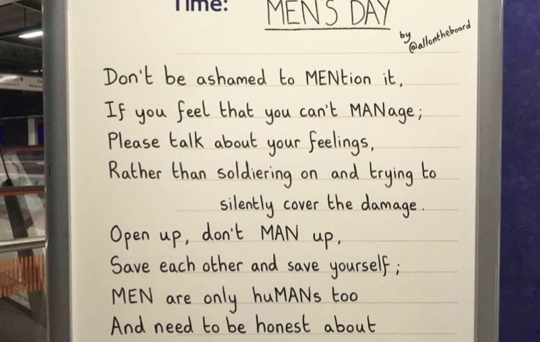 Time:
MEN'S DAY
by
@allontheboard
Don't be ashamed to MENtion it,
If you feel that you can't MANage;
Please talk about your feelings,
Rather than soldiering on and trying to
silently cover the damage.
Open up, don't MAN up,
Save each other and save yourself;
MEN are only huMANs too
And need to be honest about